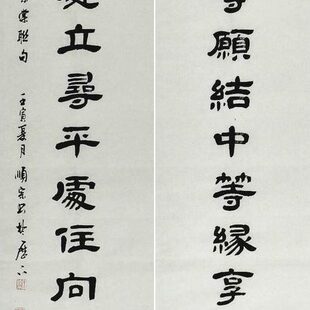 等願結中等緣享
處立尋平處住向
棠聯句 壬寅夏月 順 書於歷下